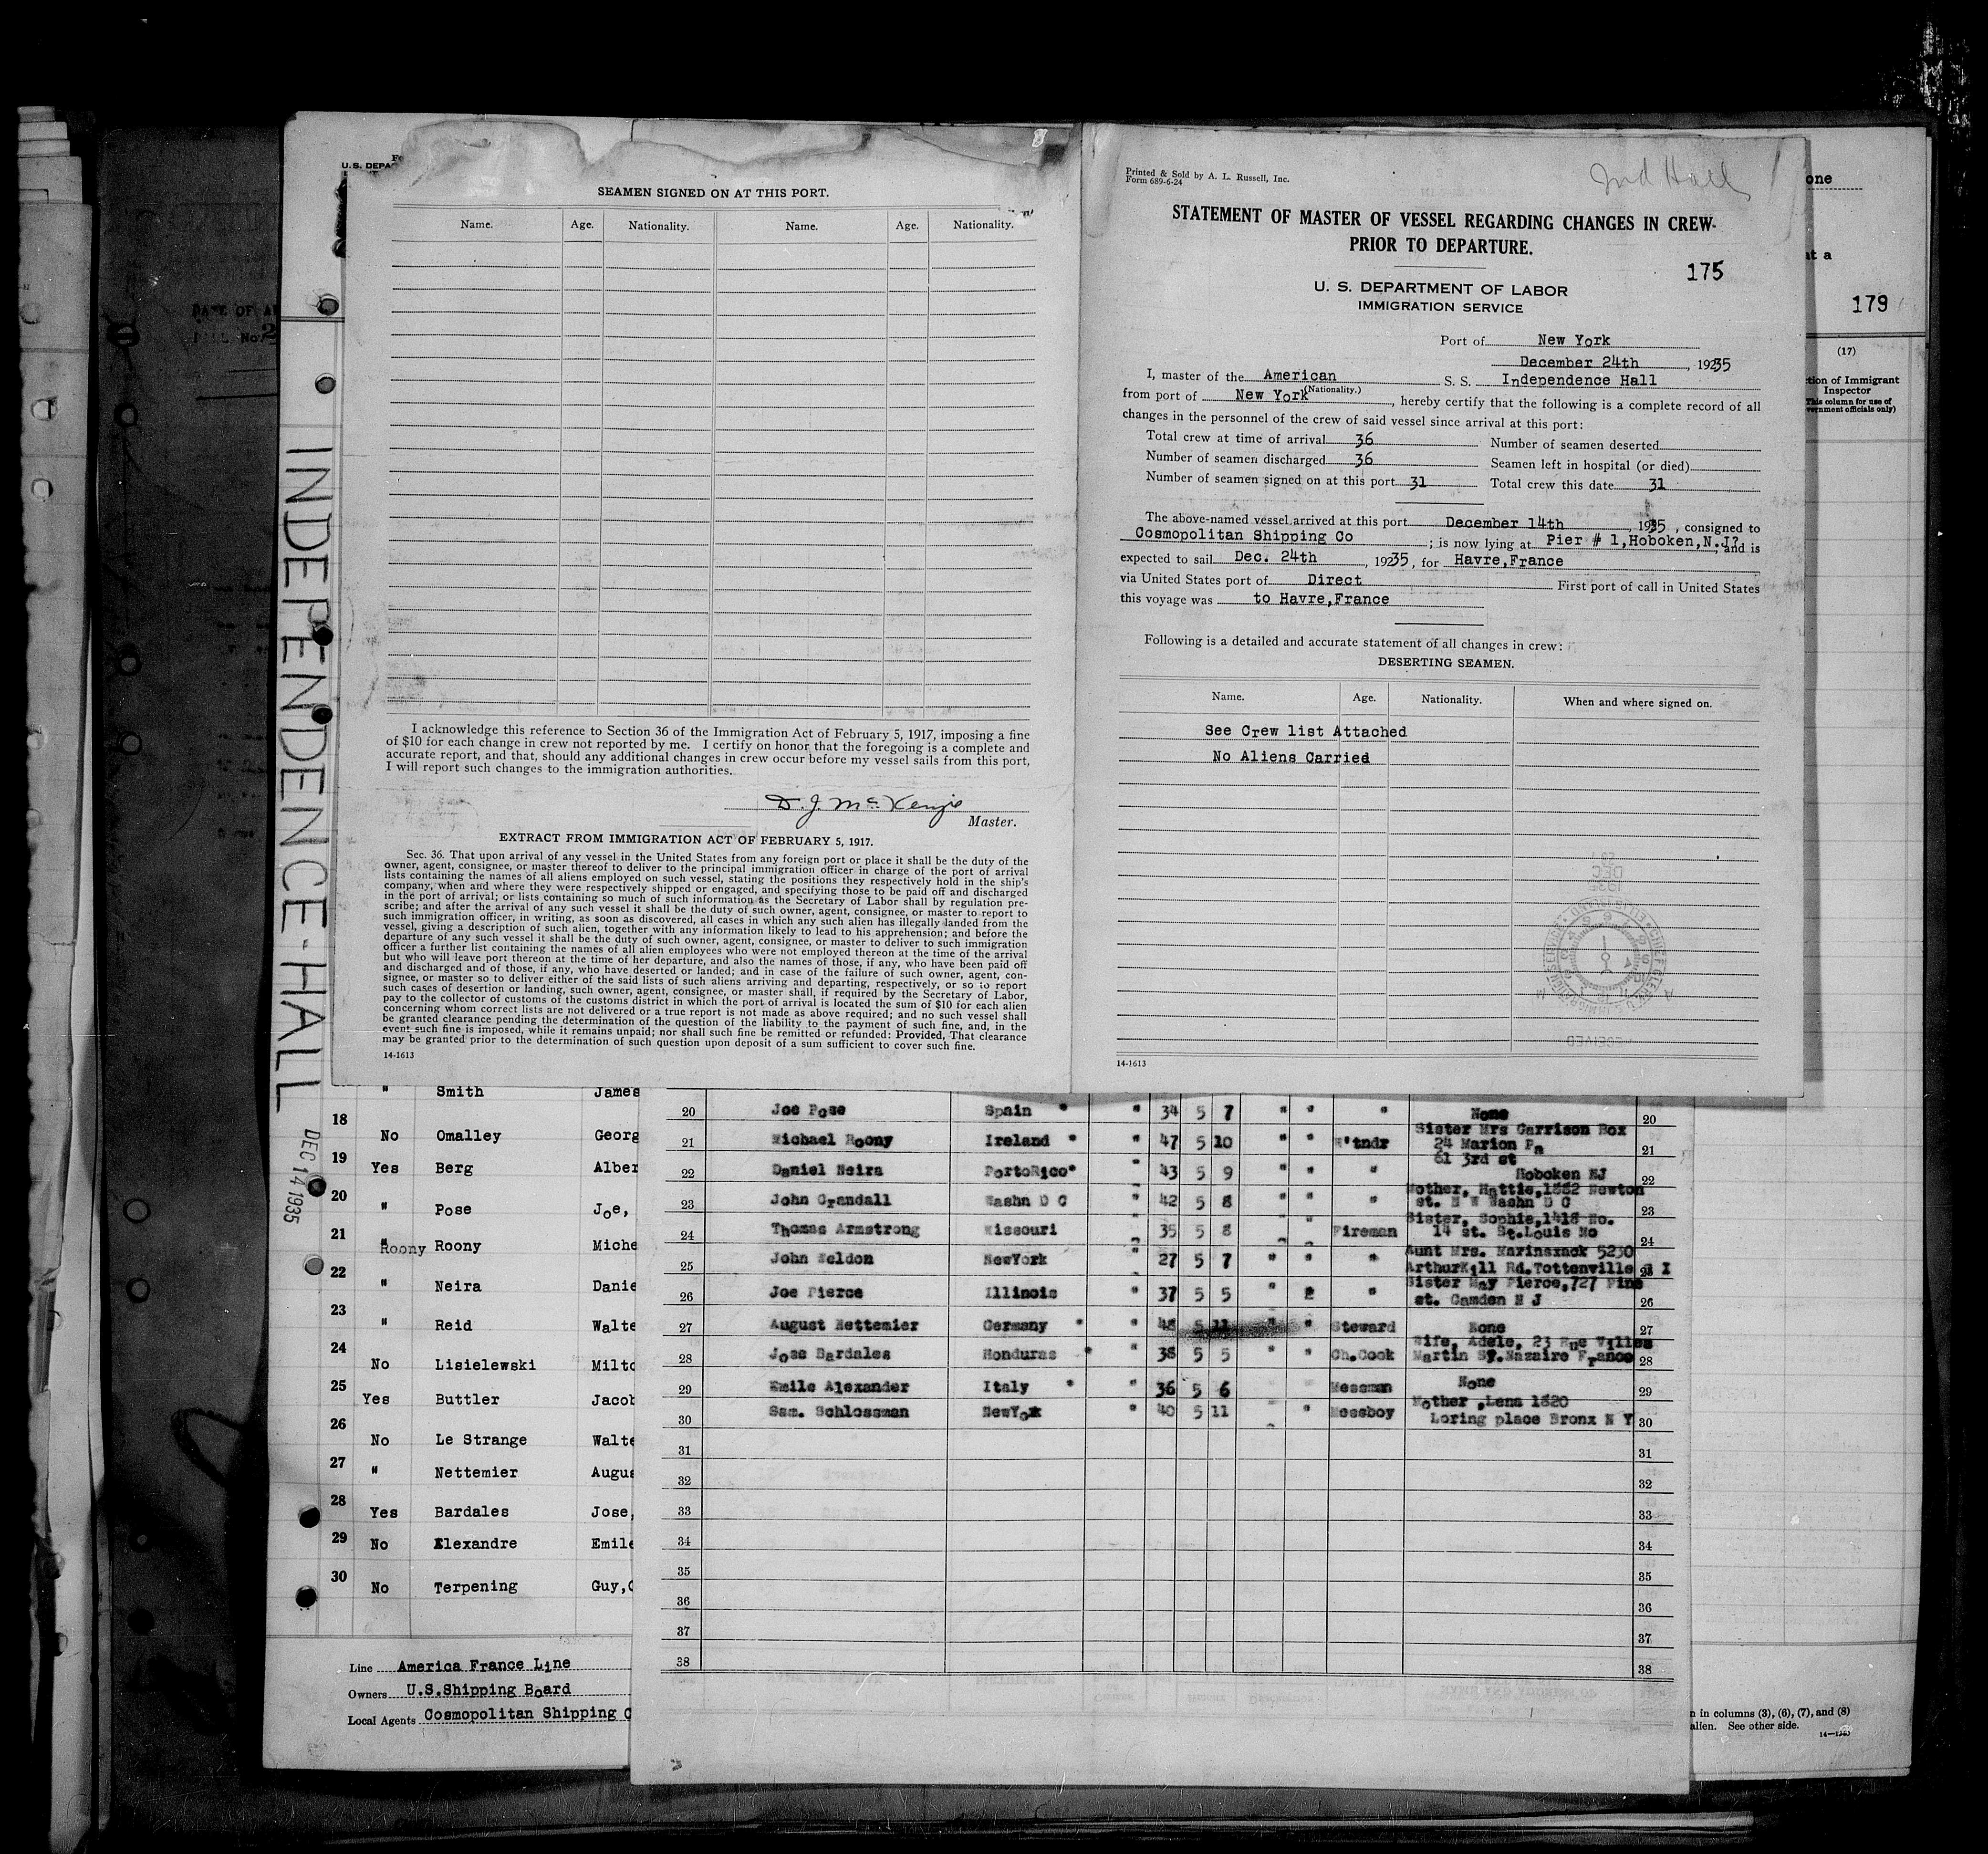 U. S. DEPA
SEAMEN SIGNED ON AT THIS PORT.
Name. Age. Nationality. Name. Age. Nationality.
I acknowledge this reference to Section 36 of the Immigration Act of February 5, 1917, imposing a fine
of $10 for each change in crew not reported by me. I certify on honor that the foregoing is a complete and
accurate report, and that, should any additional changes in crew occur before my vessel sails from this port,
I will report such changes to the immigration authorities.
D. J. McKenzie
Master.
EXTRACT FROM IMMIGRATION ACT OF FEBRUARY 5, 1917.
Sec. 36. That upon arrival of any vessel in the United States from any foreign port or place it shall be the duty of the
owner, agent, consignee, or master thereof to deliver to the principal immigration officer in charge of the port of arrival
lists containing the names of all aliens employed on such vessel, stating the positions they respectively hold in the ship's
company, when and where they were respectively shipped or engaged, and specifying those to be paid off and discharged
in the port of arrival; or lists containing so much of such information as the Secretary of Labor shall by regulation pre-
scribe; and after the arrival of any such vessel it shall be the duty of such owner, agent, consignee, or master to report to
such immigration officer, in writing, as soon as discovered, all cases in which any such alien has illegally landed from the
vessel, giving a description of such alien, together with any information likely to lead to his apprehension; and before the
departure of any such vessel it shall be the duty of such owner, agent, consignee, or master to deliver to such immigration
officer a further list containing the names of all alien employees who were not employed thereon at the time of the arrival
but who will leave port thereon at the time of her departure, and also the names of those, if any, who have been paid off
and discharged and of those, if any, who have deserted or landed; and in case of the failure of such owner, agent, con-
signee, or master so to deliver either of the said lists of such aliens arriving and departing, respectively, or so to report
such cases of desertion or landing, such owner, agent, consignee, or master shall, if required by the Secretary of Labor,
pay to the collector of customs of the customs district in which the port of arrival is located the sum of $10 for each alien
concerning whom correct lists are not delivered or a true report is not made as above required; and no such vessel shall
be granted clearance pending the determination of the question of the liability to the payment of such fine, and, in the
event such fine is imposed, while it remains unpaid; nor shall such fine be remitted or refunded: Provided, That clearance
may be granted prior to the determination of such question upon deposit of a sum sufficient to cover such fine.
14-1613
Printed & Sold by A. L. Russell, Inc.
Form 689-6-24
Ind Hall
STATEMENT OF MASTER OF VESSEL REGARDING CHANGES IN CREW
PRIOR TO DEPARTURE.
175
U. S. DEPARTMENT OF LABOR
IMMIGRATION SERVICE
Port of New York
December 24th, 1935
I, master of the American S. S. Independence Hall
(Nationality.)
from port of New York, hereby certify that the following is a complete record of all
changes in the personnel of the crew of said vessel since arrival at this port:
Total crew at time of arrival 36 Number of seamen deserted
Number of seamen discharged 36 Seamen left in hospital (or died)
Number of seamen signed on at this port 31 Total crew this date 31
The above-named vessel arrived at this port December 14th, 1935, consigned to
Cosmopolitan Shipping Co; is now lying at Pier # 1,Hoboken,N.J?; and is
expected to sail Dec. 24th, 19235, for Havre,France
via United States port of Direct First port of call in United States
this voyage was to Havre,France
Following is a detailed and accurate statement of all changes in crew:
DESERTING SEAMEN.
Name. Age. Nationality. When and where signed on.
See Crew list Attached
No Aliens Carried
14-1613
one
at a
179
(17)
tion of Immigrant
Inspector
This column for use of
vernment officials only)
INDEPENDENCE-HALL
DEC 14 1935
" Smith James
18 No Omalley Georg
19 Yes Berg Alber
20 " Pose Joe,
21 " Roony Roony Miche
22 " Neira Danie
23 " Reid Walte
24 No Lisielewski Milto
25 Yes Buttler Jacob
26 No Le Strange Walte
27 " Nettemier Augus
28 Yes Bardales Jose,
29 No Alexandre Emile
30 No Terpening Guy,
Line America France Line
Owners U.S.Shipping Board
Local Agents Cosmopolitan Shipping C
20 Joe Pose Spain " " 34 5 7 " " " None 20
21 Michael Roony Ireland " " 47 5 10 " " W'tndr Sister Mrs Garrison Box
24 Marion Pa 21
22 Daniel Neira PortoRico" " 43 5 9 " " " 61 3rd st
Hoboken NJ 22
23 John Crandall Washn D C " 42 5 8 " " " Mother, Hattie,1882 Newton
st. N W Washn D C 23
24 Thomas Armstrong Missouri " 35 5 8 " " Fireman Sister, Sophie,1418 No.
14 st. St.Louis Mo 24
25 John Weldon NewYork " 27 5 7 " " " Aunt Mrs. Marinsxack 5230
ArthurKill Rd.Tottenville S I 25
26 Joe Pierce Illinois " 37 5 5 " " " Sister May Pierce,727 Pine
st. Camden N J 26
27 August Nettemier Germany " " 48 5 11 " " Steward None 27
28 Jose Bardales Honduras " " 38 5 5 " " Ch.Cook Wife, Adele, 23 Rue Villes
Martin St.Nazaire France 28
29 Emile Alexander Italy " " 36 5 6 Messman None 29
30 Sam. Schlossman NewYork " 40 5 11 " " Messboy Mother ,Lena 1820
Loring place Bronx N Y 30
31 31
32 32
33 33
34 34
35 35
36 36
37 37
38 38
n in columns (3), (6), (7), and (8)
alien. See other side.